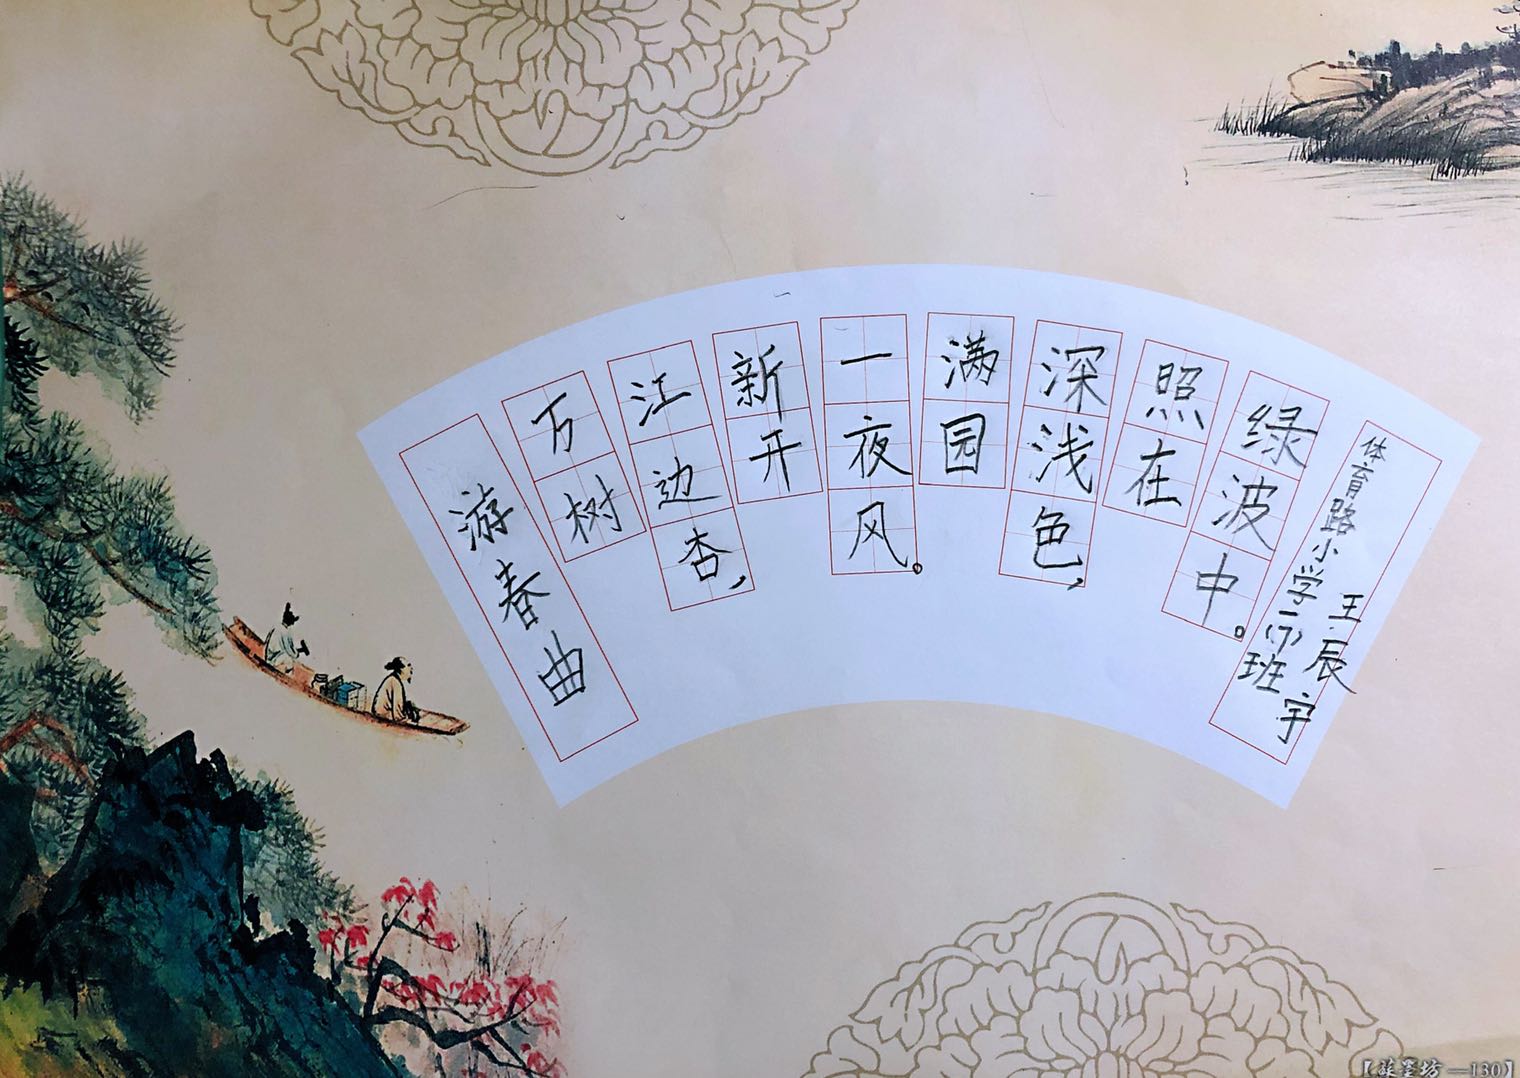 游春曲
万树
江边杏，
新开
一夜风。
满园
深浅色，
照在
绿波中。
体育路小学一（7）班
王辰宇
【荻墨坊—130】